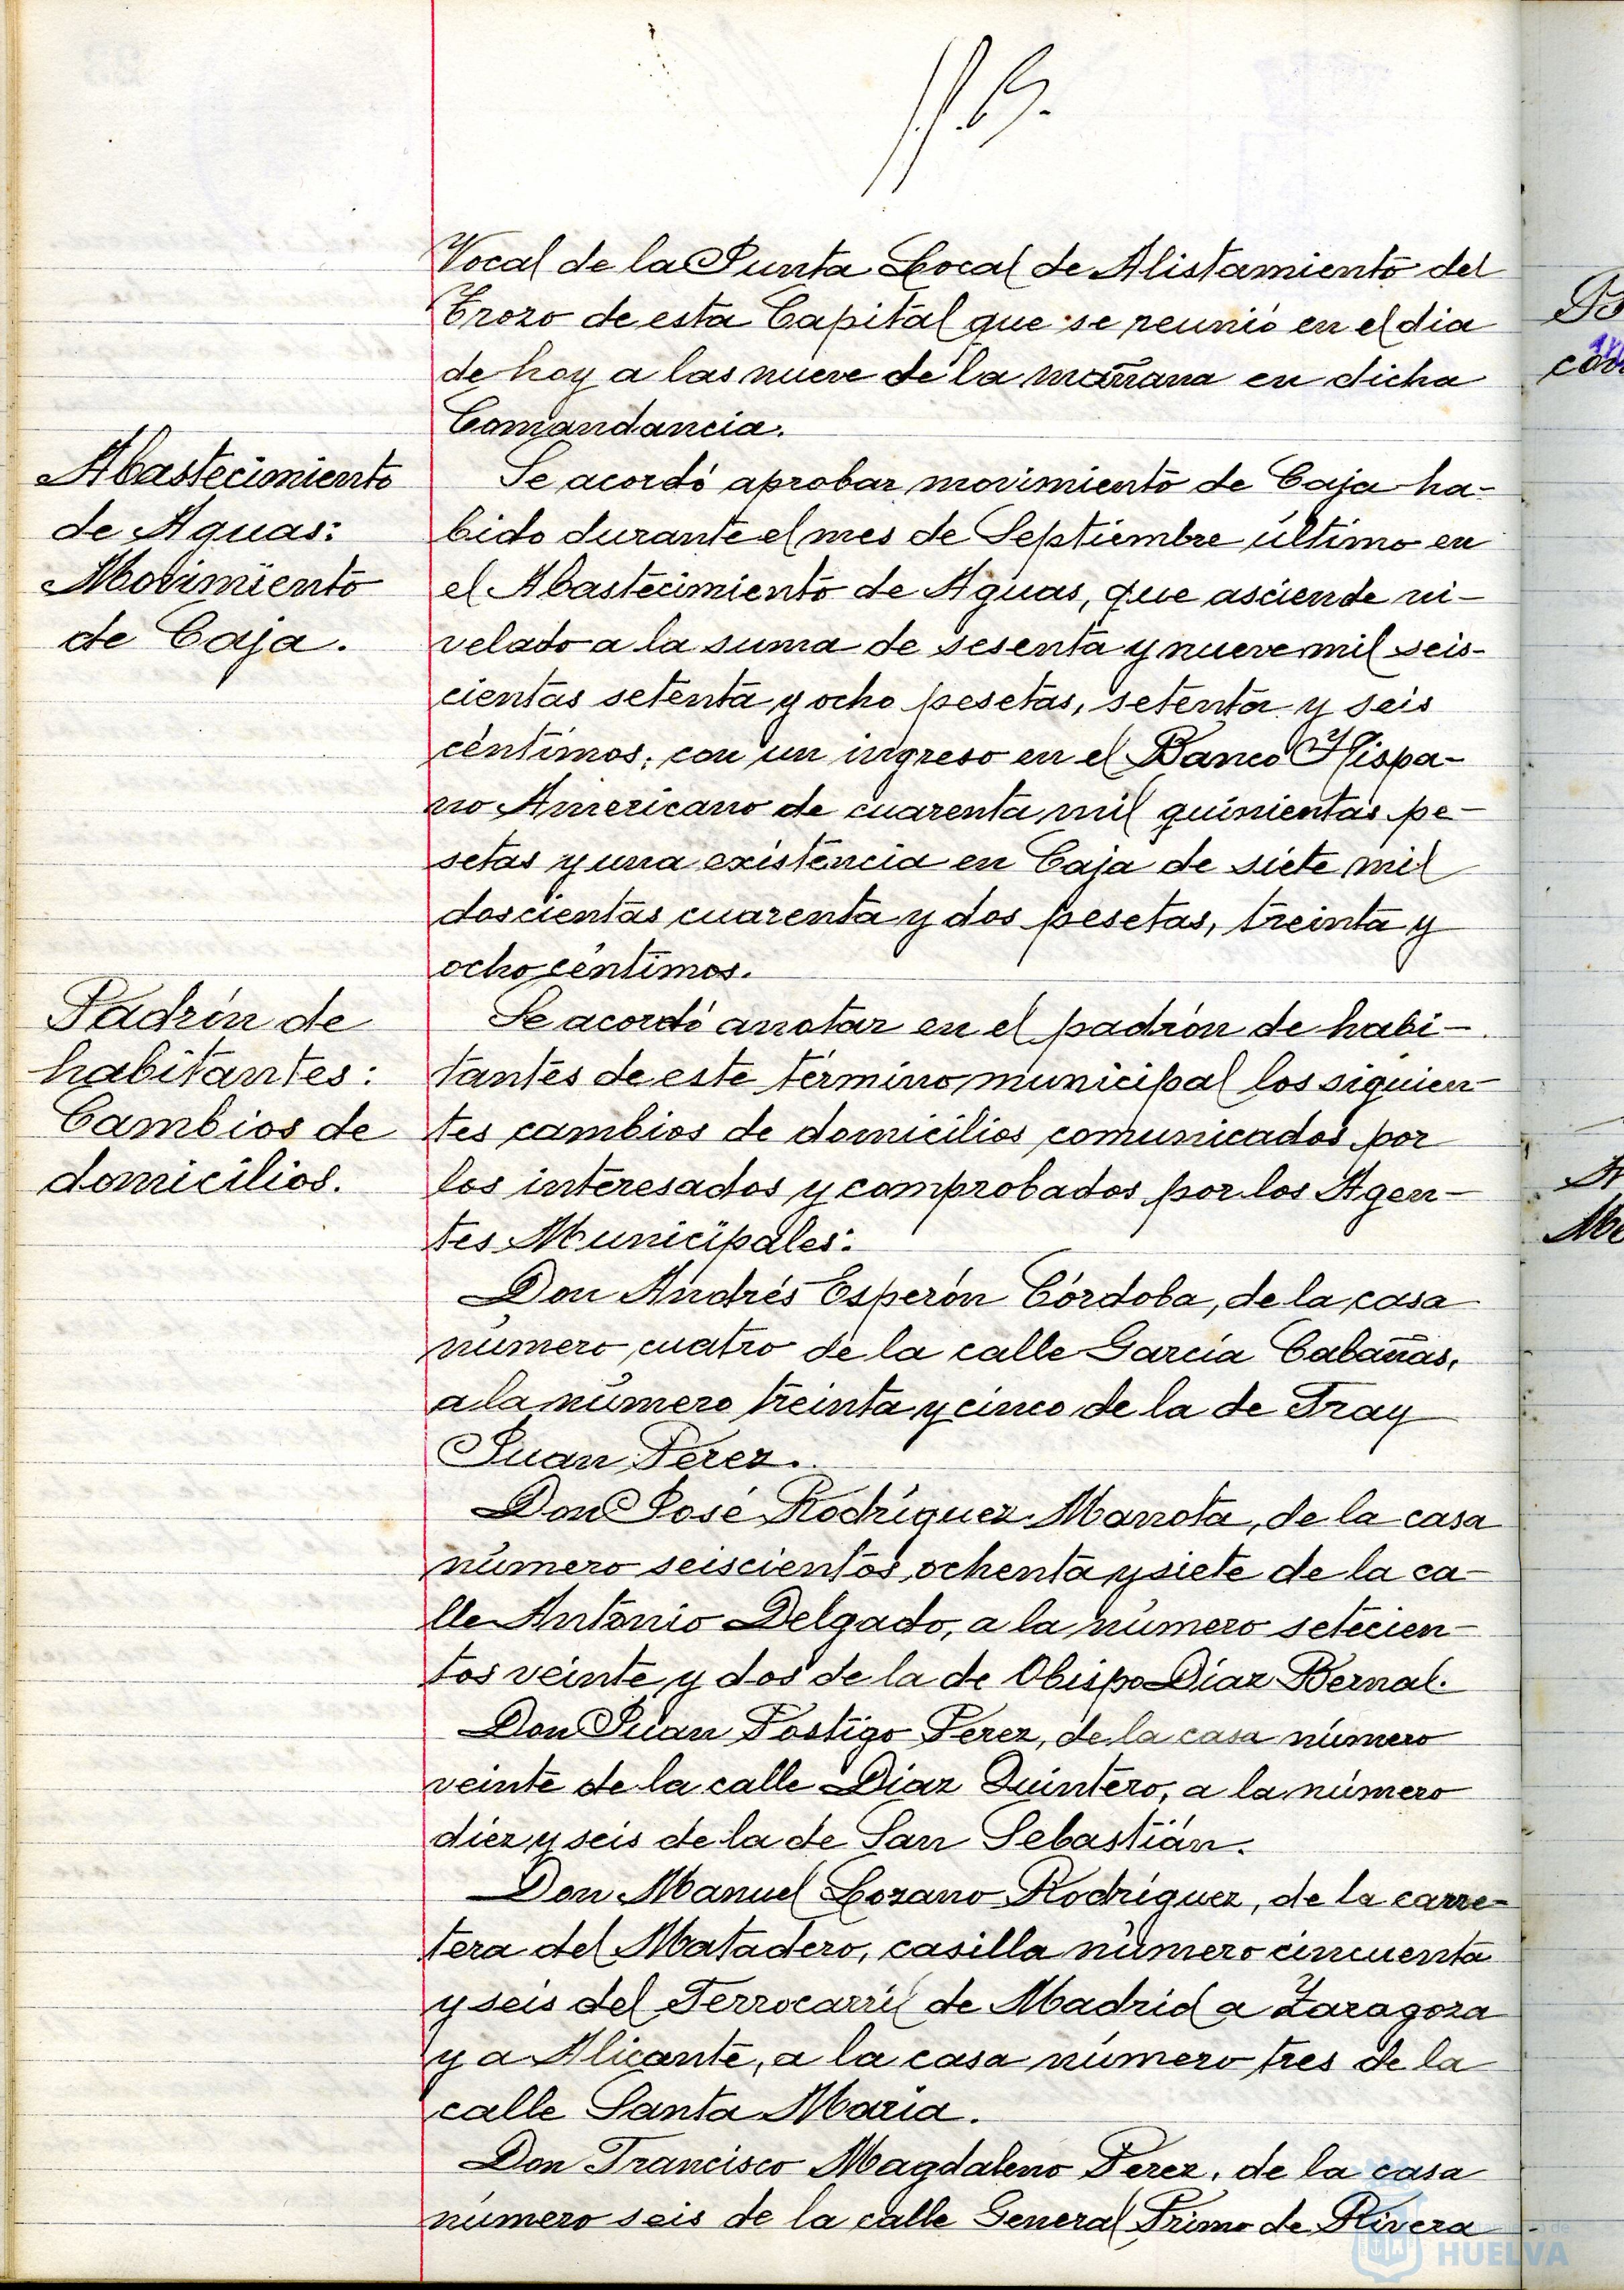 Vocal de la Junta Local de Alistamiento del
Trozo de esta Capital que se reunió en el dia
de hoy a las nueve de la mañana en dicha
Comandancia.
Abastecimiento
de Aguas:
Movimiento
de Caja.
Se acordó aprobar movimiento de Caja ha-
bido durante el mes de Septiembre último en
el Abastecimiento de Aguas, que asciende ni-
velado a la suma de sesenta y nueve mil seis-
cientas setenta y ocho pesetas, setenta y seis
céntimos, con un ingreso en el Banco Hispa-
no Americano de cuarenta mil quinientas pe-
setas y una existencia en Caja de siete mil
doscientas cuarenta y dos pesetas, treinta y
ocho céntimos.
Padrón de
habitantes:
Cambios de
domicilios.
Se acordó anotar en el padrón de habi-
tantes de este término municipal los siguien-
tes cambios de domicilios comunicados por
los interesados y comprobados por los Agen-
tes Municipales:
Don Andrés Esperón Córdoba, de la casa
número cuatro de la calle García Cabañas,
a la número treinta y cinco de la de Fray
Juan Perez.
Don José Rodríguez Marrota, de la casa
número seiscientos ochenta y siete de la ca-
lle Antonio Delgado, a la número setecien-
tos veinte y dos de la de Obispo Diaz Bernal.
Don Juan Postigo Perez, de la casa número
veinte de la calle Diaz Quintero, a la número
diez y seis de la de San Sebastián.
Don Manuel Lozano Rodríguez, de la carre-
tera del Matadero, casilla número cincuenta
y seis del Ferrocarril de Madrid a Zaragoza
y a Alicante, a la casa número tres de la
calle Santa María.
Don Francisco Magdaleno Perez, de la casa
número seis de la calle General Primo de Rivera
HUELVA